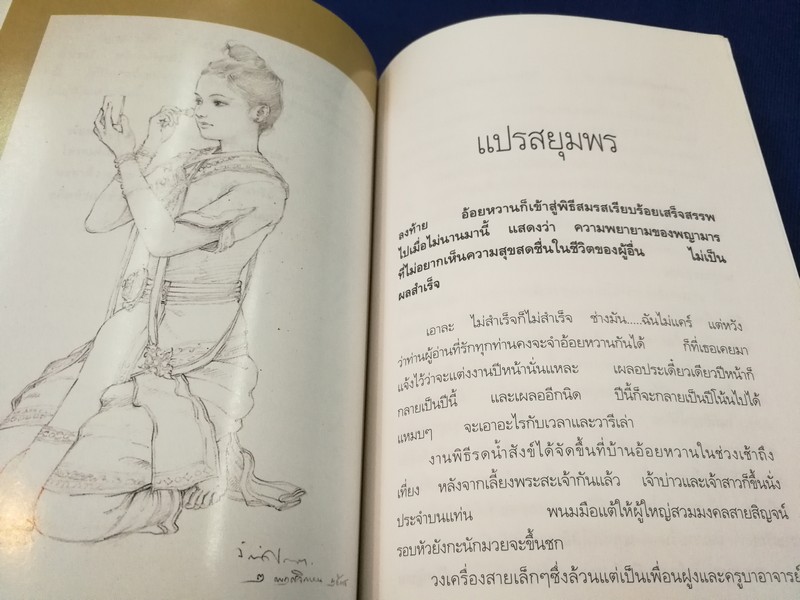 แปรสยุมพร
ลงท้าย อ้อยหวานก็เข้าสู่พิธีสมรสเรียบร้อยเสร็จสรรพ
ไปเมื่อไม่นานมานี้ แสดงว่า ความพยายามของพญามาร
ที่ไม่อยากเห็นความสุขสดชื่นในชีวิตของผู้อื่น ไม่เป็น
ผลสำเร็จ
เอาละ ไม่สำเร็จก็ไม่สำเร็จ ช่างมัน.....ฉันไม่แคร์ แต่หวัง
ว่าท่านผู้อ่านที่รักทุกท่านคงจะจำอ้อยหวานกันได้ ก็ที่เธอเคยมา
แจ้งไว้ว่าจะแต่งงานปีหน้านั่นแหละ เผลอประเดี๋ยวเดียวปีหน้าก็
กลายเป็นปีนี้ และเผลออีกนิด ปีนี้ก็จะกลายเป็นปีโน้นไปได้
แหมบๆ จะเอาอะไรกับเวลาและวารีเล่า
งานพิธีรดน้ำสังข์ได้จัดขึ้นที่บ้านอ้อยหวานในช่วงเช้าถึง
เที่ยง หลังจากเลี้ยงพระสะเจ้ากันแล้ว เจ้าบ่าวและเจ้าสาวก็ขึ้นนั่ง
ประจำบนแท่น พนมมือแต้ให้ผู้ใหญ่สวมมงคลสายสิญจน์
รอบหัวยังกะนักมวยจะขึ้นชก
วงเครื่องสายเล็กๆซึ่งล้วนแต่เป็นเพื่อนฝูงและครูบาอาจารย์